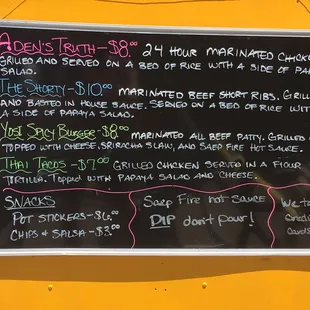 Aden's Truth - $8.00 24 Hour marinated chick
Grilled and served on a bed of rice with a side of pap
salad.
The Shorty - $10.00 marinated beef short ribs. Grill
and basted in house sauce. Served on a bed of rice wit
a side of papaya salad.
Yosi Spicy Burger - $8.00 marinated all beef patty. Grilled
topped with cheese, sriracha slaw, and Saep Fire hot sauce.
Thai Tacos - $7.00 Grilled chicken served in a flour
tirtilla. Topped with papaya salad and cheese.
Snacks
Pot stickers - $6.00
Chips & Salsa - $3.00
Saep Fire hot sauce
DIP don't pour!
We ta
cred
cards